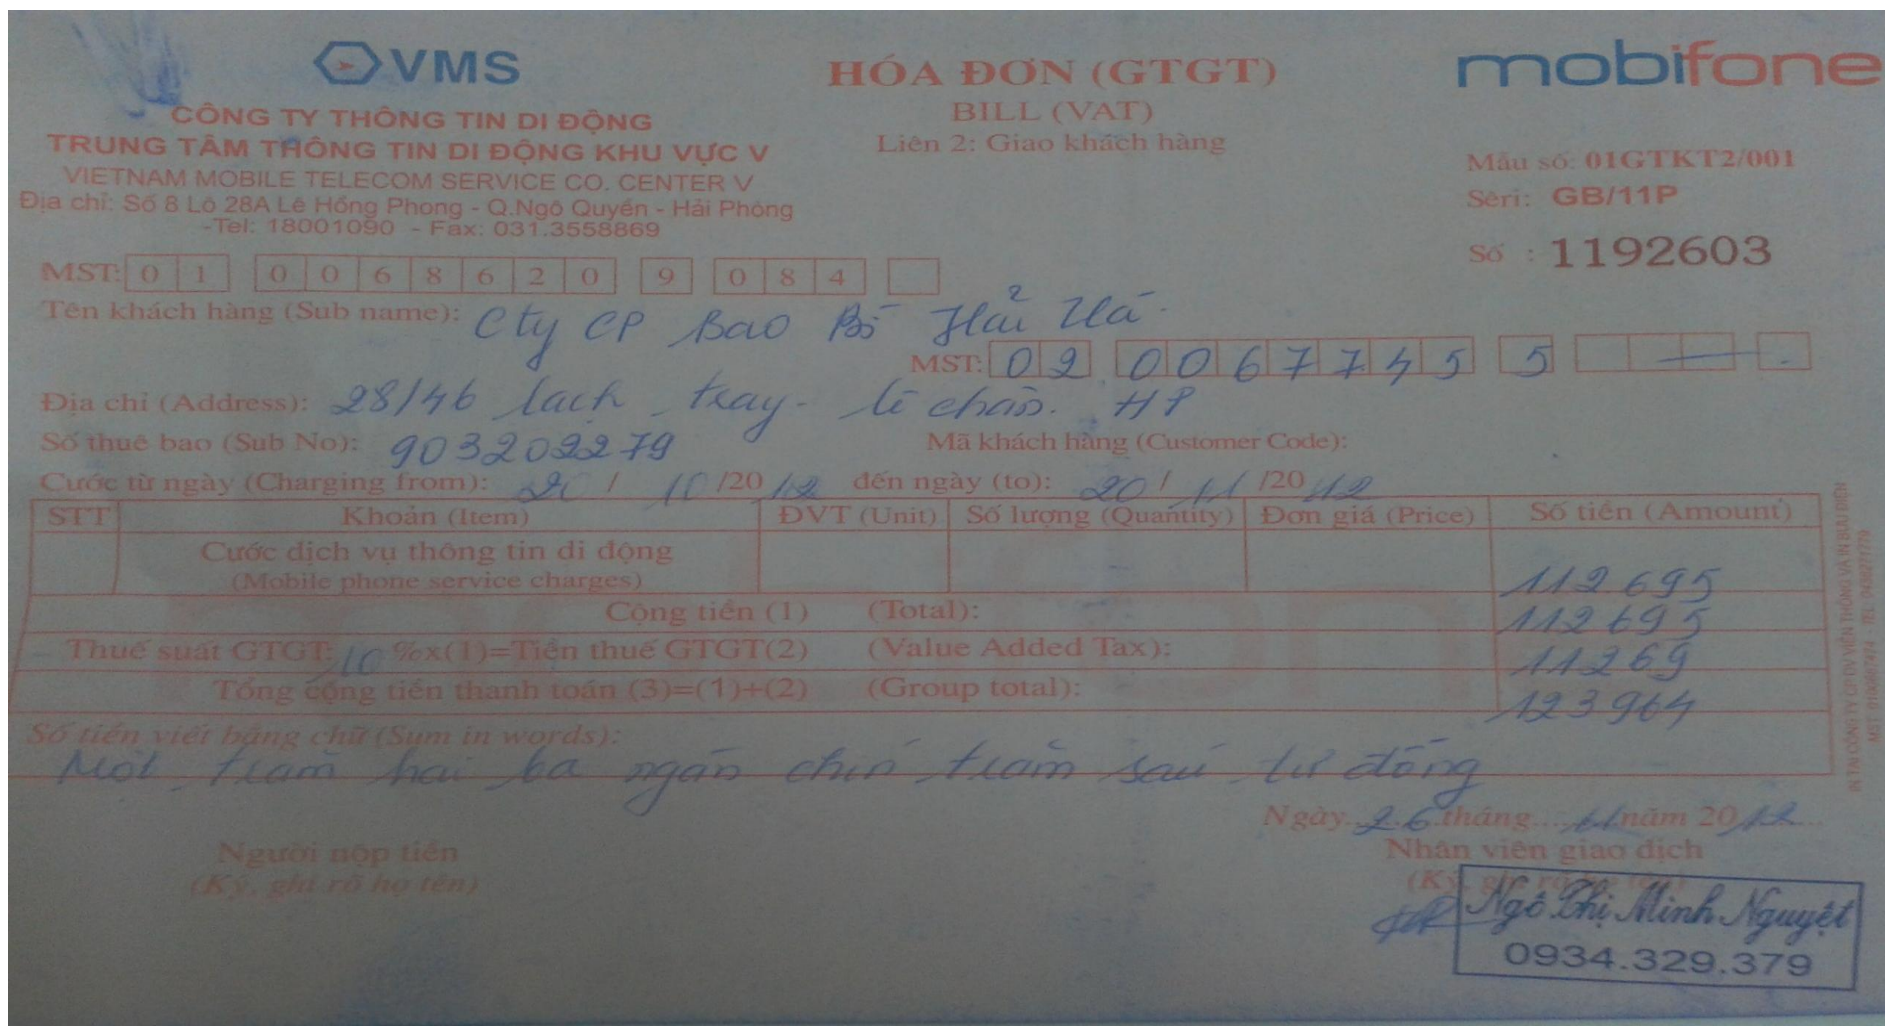 VMS
HÓA ĐƠN (GTGT)
mobifone
BILL (VAT)
CÔNG TY THÔNG TIN DI ĐỘNG
Liên 2: Giao khách hàng
TRUNG TÂM THÔNG TIN DI ĐỘNG KHU VỰC V
VIETNAM MOBILE TELECOM SERVICE CO. CENTER V
Mẫu số: 01GTKT2/001
Địa chỉ: Số 8 Lô 28A Lê Hồng Phong - Q.Ngô Quyền - Hải Phòng
Sêri: GB/11P
-Tel: 18001090 - Fax: 031.3558869
Số : 1192603
MST: 01 0068620 9 084
Tên khách hàng (Sub name): Cty CP Bao Bì Hải Hà
MST: 02 0067745 5
Địa chỉ (Address): 28/46 lạch tray - lê chân. HP
Số thuê bao (Sub No): 903202279 Mã khách hàng (Customer Code):
Cước từ ngày (Charging from): 20 / 10 /2012 đến ngày (to): 20 / 11 /2012
STT Khoản (Item) ĐVT (Unit) Số lượng (Quantity) Đơn giá (Price) Số tiền (Amount)
Cước dịch vụ thông tin di động
(Mobile phone service charges) 112695
Cộng tiền (1) (Total): 112695
Thuế suất GTGT: 10 %x(1)=Tiền thuế GTGT(2) (Value Added Tax): 11269
Tổng cộng tiền thanh toán (3)=(1)+(2) (Group total): 123964
Số tiền viết bằng chữ (Sum in words):
Một trăm hai ba ngàn chín trăm sáu tư đồng
Ngày 26 tháng 11 năm 2012
Người nộp tiền
Nhân viên giao dịch
(Ký, ghi rõ họ tên)
(Ký, ghi rõ họ tên)
Ngô Thị Minh Nguyệt
0934.329.379